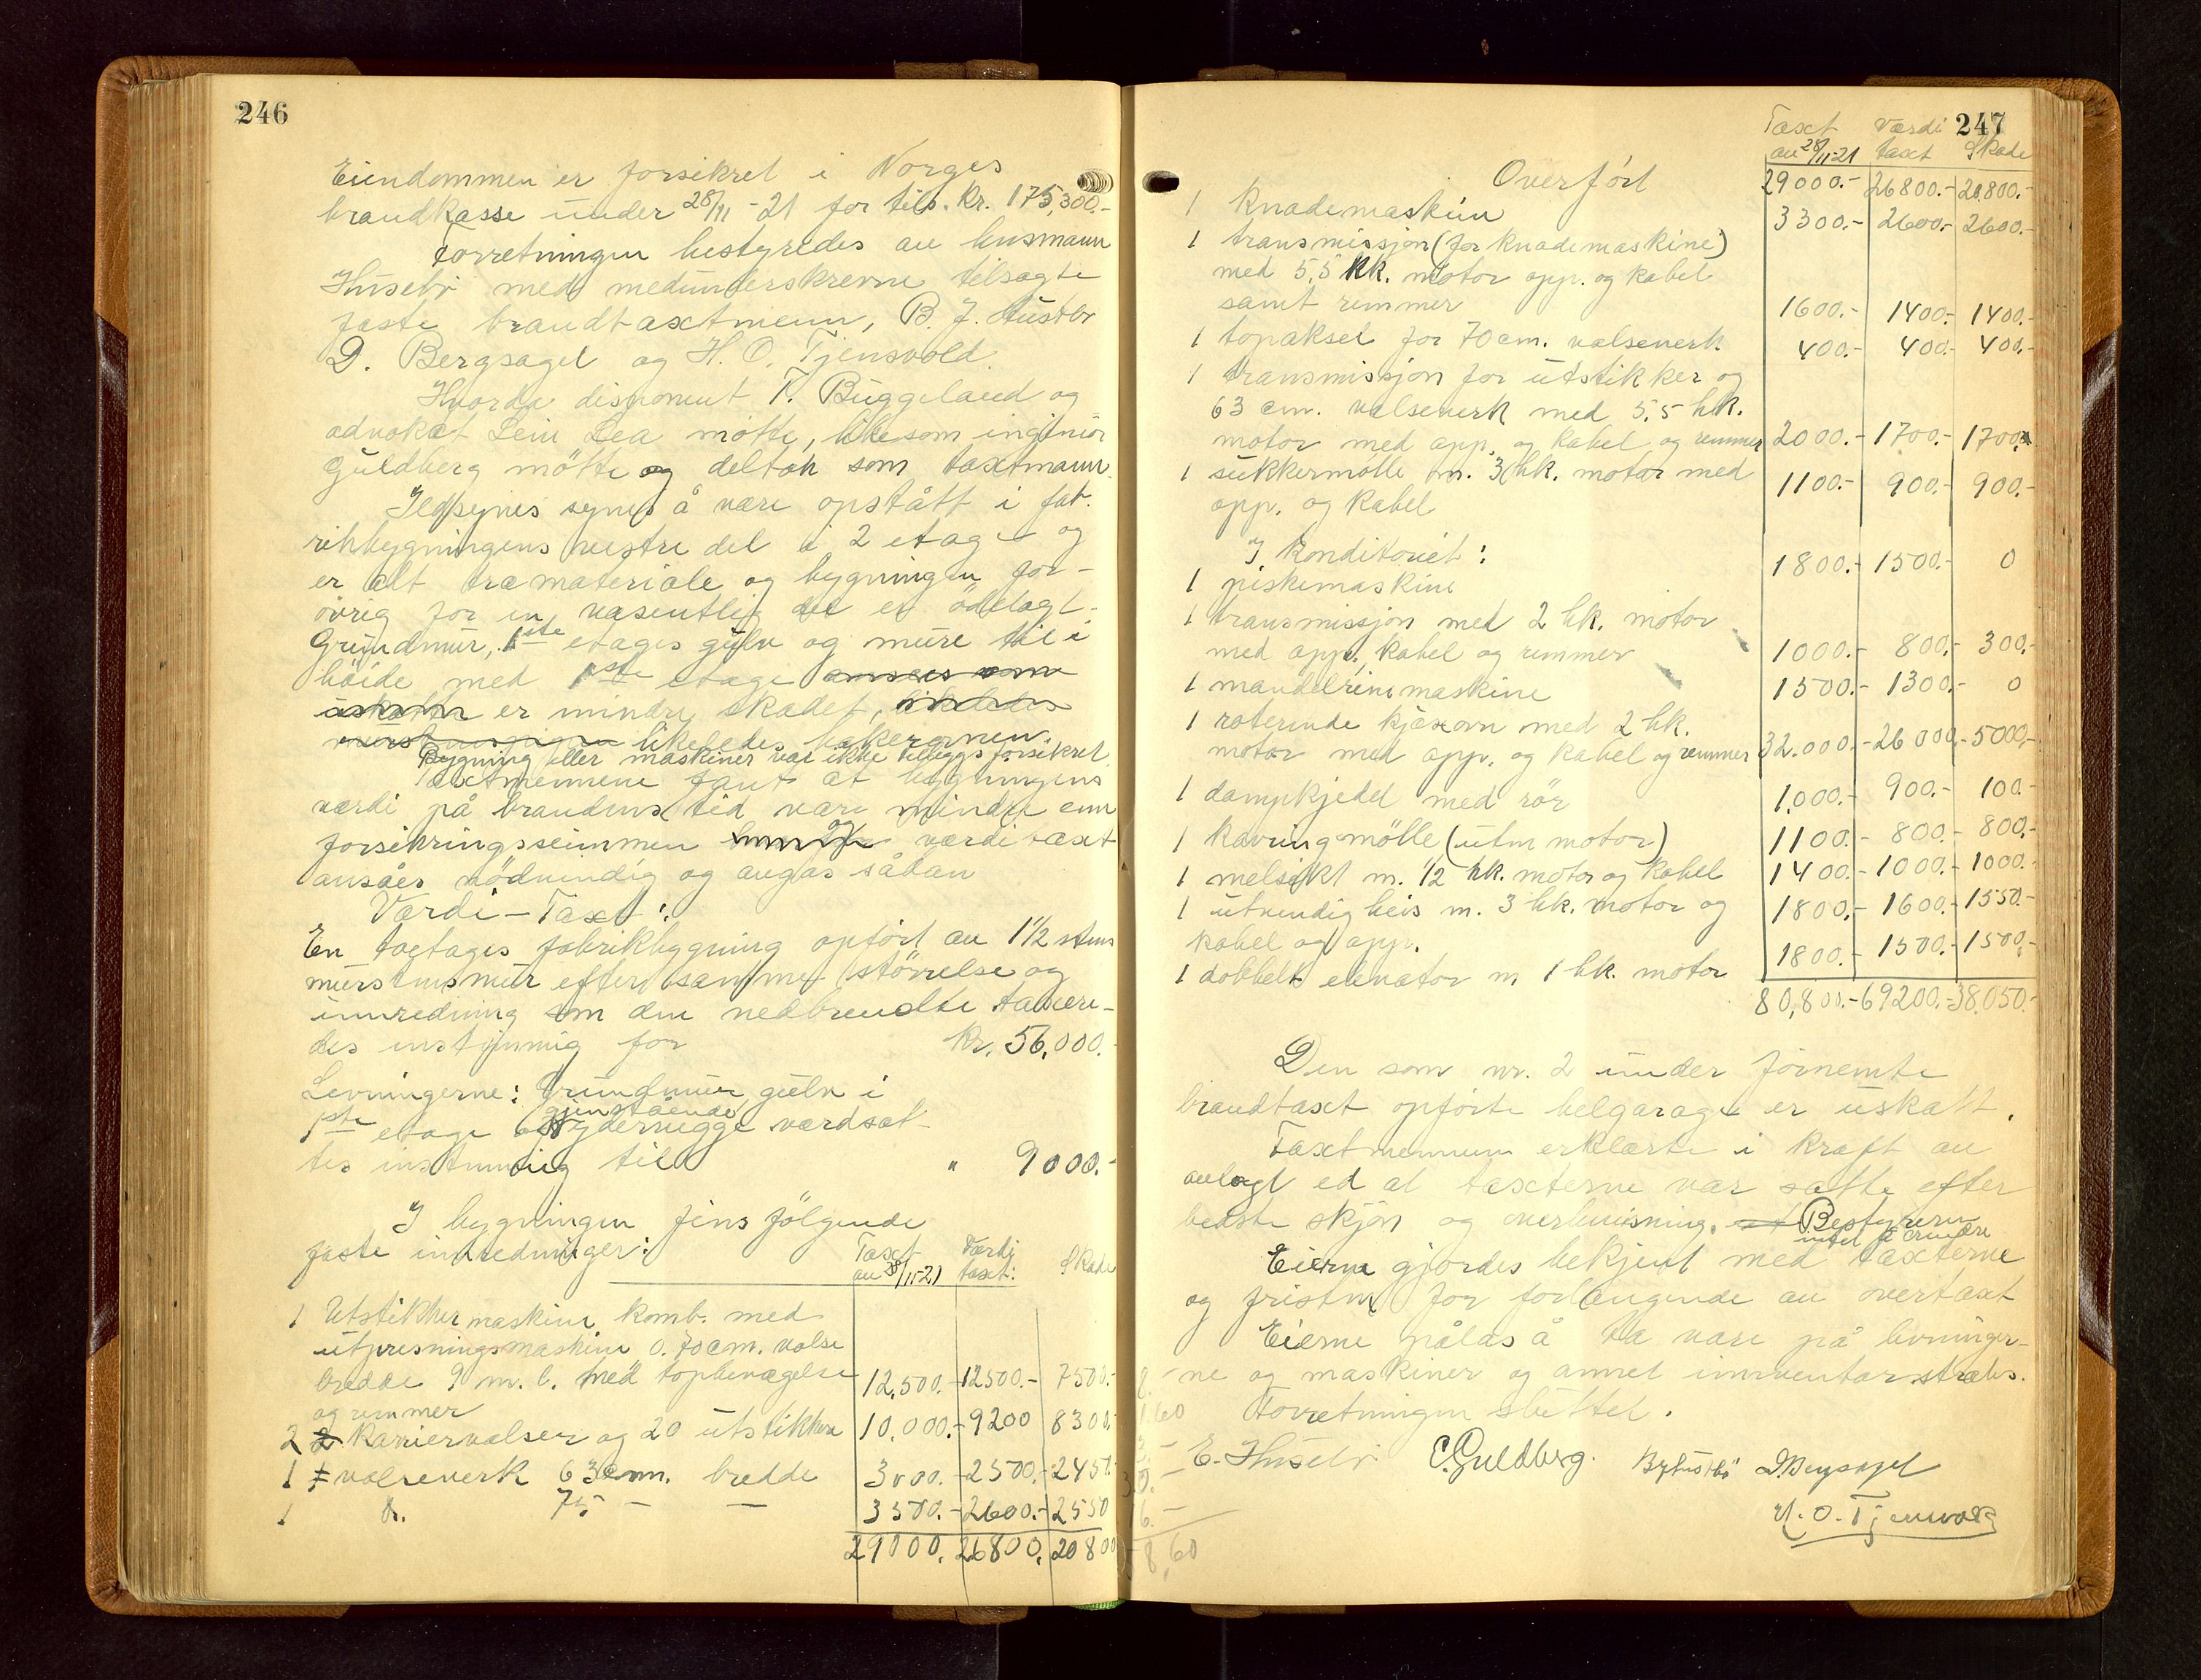 246
Eiendommen er forsikret i Norges
brandkasse under 28/11-21 for tils. kr. 175,300.-
Forretningen bestyredes av lensmann
Husebø med medunderskrevne tilsagte
faste brandtaxtmenn, B. J. Austbø
D. Bergsagel og H. O. Tjensvold.
Hvorda disponent T. Buggeland og
advokat Leiv Lea møtte, likesom ingeniør
Guldberg møtte og deltok som taxtmann.
Ildsynes synes å være opstått i fab-
rikbygningens vestre del i 2 etage og
er alt træmateriale og bygningen for-
øvrig for en væsentlig del er ödelagt.
Grundmur, 1ste etages gulv og mure til i
höide med 1ste etage ansees som
uskatt er mindre skadet, likeledes
likeledes bakerovnen.
Bygning eller maskiner var ikke tilleggsforsikret.
Taxtmennene fant at bygningens
værdi på brandens tid være mindre enn
forsikringssummen og værditaxt
ansåes nödvendig og avgas sådan
Værdi-Taxt:
En toetages fabrikbygning opført av 1 1/2 stens
murstensmur efter samme størrelse og
innredning som den nedbrendte taxere-
des enstemmig for kr. 56,000.-
Levningerne: Grundmur, gulv i
1ste etage og gjenstående ydervegge værdsat-
tes enstemmig til " 9000.-
I bygningen fins følgende
faste innredninger:
Taxt av 28/11-21 Værdi taxt: Skade
1 Utstikkermaskine komb. med
utpresningsmaskine o. 70 cm. valse
bredde 9 m. l. med topbevægelse 12,500.- 12500.- 7500.-
og remmer
2 karriervalser og 20 utstikkere 10,000.- 9200 8300.-
1 valseverk 63 cm. bredde 3000.- 2500.- 2450.-
1 do. 75 - - 3500.- 2600.- 2550
29000. 26800. 20800
247
Taxt av 28/11-21 Værdi taxt Skade
Overført 29000.- 26800.- 20,800.-
1 knademaskin 3300.- 2600.- 2600.-
1 transmissjon (for knademaskine)
med 5,5 hk. motor opp. og kabel
samt remmer 1600.- 1400.- 1400.-
1 topaksel for 70 cm. valseverk 400.- 400.- 400.-
1 transmissjon for utstikker og
63 cm. valseverk med 5,5 hk.
motor med app. og kabel og remmer 2000.- 1700.- 1700.-
1 sukkermølle m. 3 hk. motor med 1100.- 900.- 900.-
app. og kabel
I konditoriet:
1 piskemaskine 1800.- 1500.- 0
1 transmissjon med 2 hk. motor
med app., kabel og remmer 1000.- 800.- 300.-
1 mandelrivemaskine 1500.- 1300.- 0
1 roterende kjæxovn med 2 hk.
motor med app. og kabel og remmer 32.000.- 26000.- 5000.-
1 dampkjedel med rör 1,000.- 900.- 100.-
1 kavringmölle (uten motor) 1100.- 800.- 800.-
1 melsikt m. 1/2 hk. motor og kabel 1400.- 1000.- 1000.-
1 utvendig heis m. 3 hk. motor og 1800.- 1600.- 1550.-
kabel og app.
1 dobbelt elevator m. 1 hk. motor 1800.- 1500.- 1500.-
80,800.- 69200.- 38,050.-
Den som nr. 2 under förnemte
brandtaxt opførte bilgarage er uskatt.
Taxtmennene erklærte i kraft av
avlagt ed at taxterne var satte efter
bedste skjön og overbevisning. Bestyreren
intet å erindre
Eierne gjordes bekjent med taxterne
og fristen for forlangende av overtaxt
Eierne pålas å ta vare på levninger-
ne og maskiner og annet innventar straks.
Forretningen sluttet.
E. Husebø C. Guldberg. B J Austbø D Bergsagel
H. O. Tjensvold